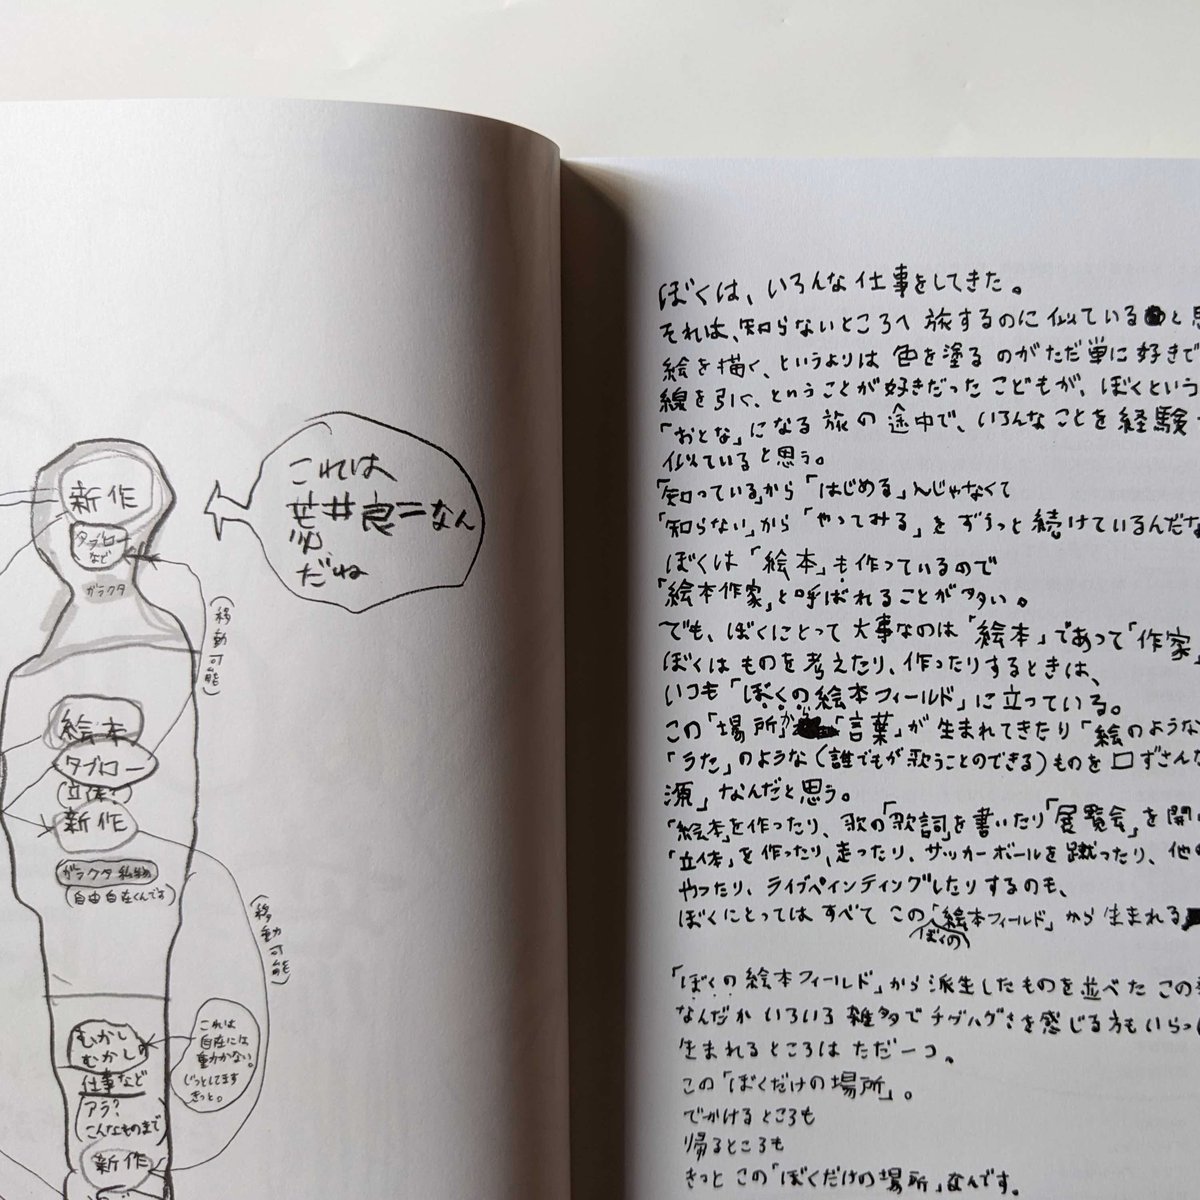 新作
タブロー
など
ガラクタ
(移動可能)
これは
荒井良二なん
だね
絵本
タブロー
(立体?)
新作
ガラクタ私物
(自由自在くんです)
(移動可能)
むかし
むかしの
仕事など
アラ?
こんなものまで
これは
自在には
動かない。
じっとしてます
きっと。
新作
ぼくは、いろんな仕事をしてきた。
それは、知らないところへ旅するのに似ていると思
絵を描く、というよりは色を塗るのがただ単に好きで
線を引く、ということが好きだったこどもが、ぼくという
「おとな」になる旅の途中で、いろんなことを経験
似ていると思う。
「知っている」から「はじめる」んじゃなくて
「知らない」から「やってみる」をずうっと続けているんだな
ぼくは「絵本」も作っているので
「絵本作家」と呼ばれることが多い。
でも、ぼくにとって大事なのは「絵本」であって「作家」
ぼくはものを考えたり、作ったりするときは、
いつも「ぼくの絵本フィールド」に立っている。
この「場所」から「言葉」が生まれてきたり「絵のような
「うた」のような(誰でもが歌うことのできる)ものを口ずさんだ
源」なんだと思う。
「絵本」を作ったり、歌の「歌詞」を書いたり「展覧会」を開い
「立体」を作ったり、走ったり、サッカーボールを蹴ったり、他の
やったり、ライブペインティングしたりするのも、
ぼくにとってはすべてこの「ぼくの絵本フィールド」から生まれる
「ぼくの絵本フィールド」から派生したものを並べたこの
なんだかいろいろ雑多でチグハグさを感じる方もいらっ
生まれるところはただ一コ。
この「ぼくだけの場所」。
でかけるところも
帰るところも
きっとこの「ぼくだけの場所」なんです。